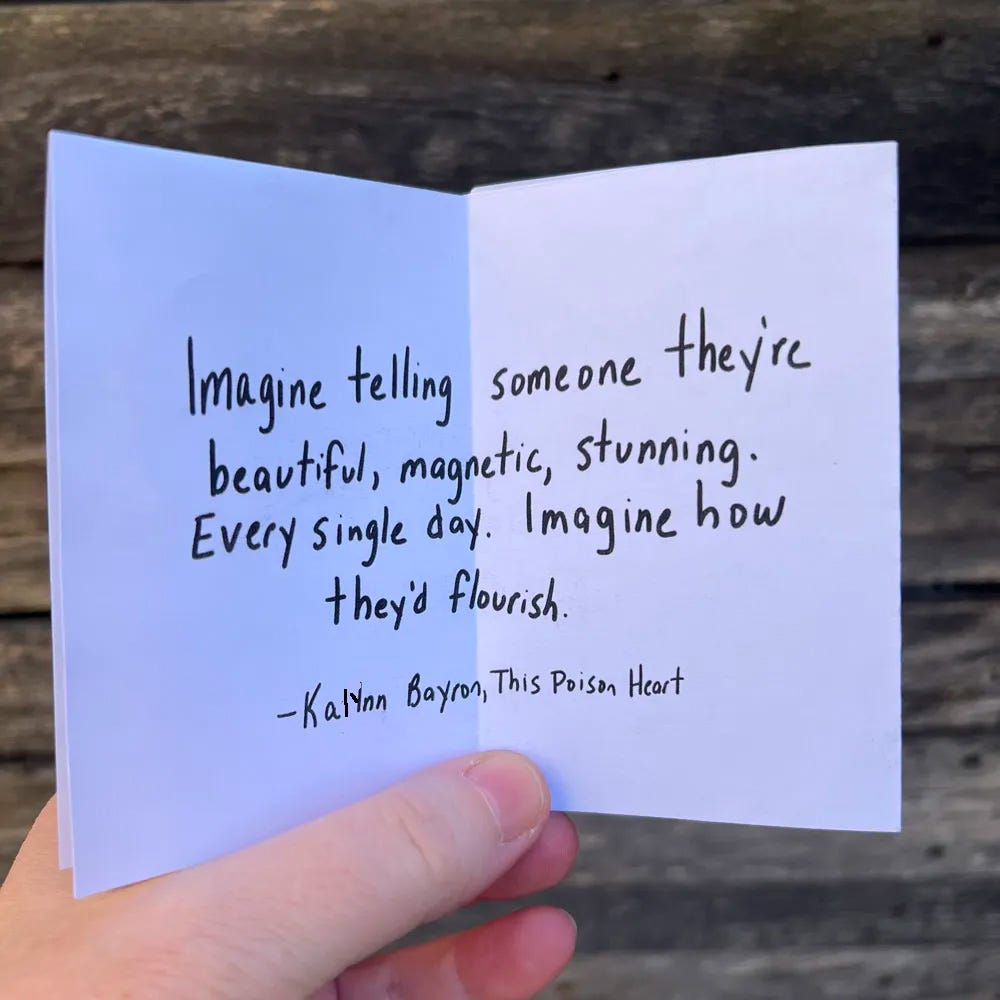 Imagine telling someone they're
beautiful, magnetic, stunning.
Every single day. Imagine how
they'd flourish.
–Kalynn Bayron, This Poison Heart